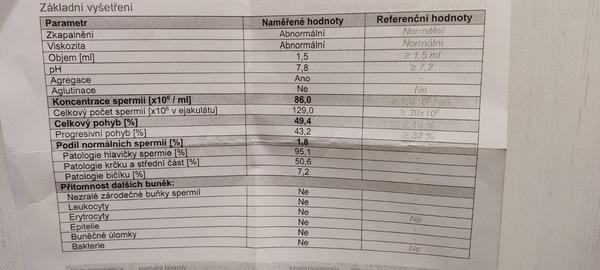 Základní vyšetření
Parametr Naměřené hodnoty Referenční hodnoty
Zkapalnění Abnormální Normální
Viskozita Abnormální Normální
Objem [ml] 1,5 ≥ 1,5 ml
pH 7,8 ≥ 7,2
Agregace Ano -
Aglutinace Ne Ne
Koncentrace spermií [x10⁶ / ml] 86,0
Celkový počet spermií [x10⁶ v ejakulátu] 129,0 ≥ 39x10⁶
Celkový pohyb [%] 49,4
Progresivní pohyb [%] 43,2 ≥ 32 %
Podíl normálních spermií [%] 1,8
Patologie hlavičky spermie [%] 95,1
Patologie krčku a střední část [%] 50,6
Patologie bičíku [%] 7,2
Přítomnost dalších buněk:
Nezralé zárodečné buňky spermií Ne
Leukocyty Ne
Erytrocyty Ne Ne
Epitelie Ne
Buněčné úlomky Ne
Bakterie Ne Ne